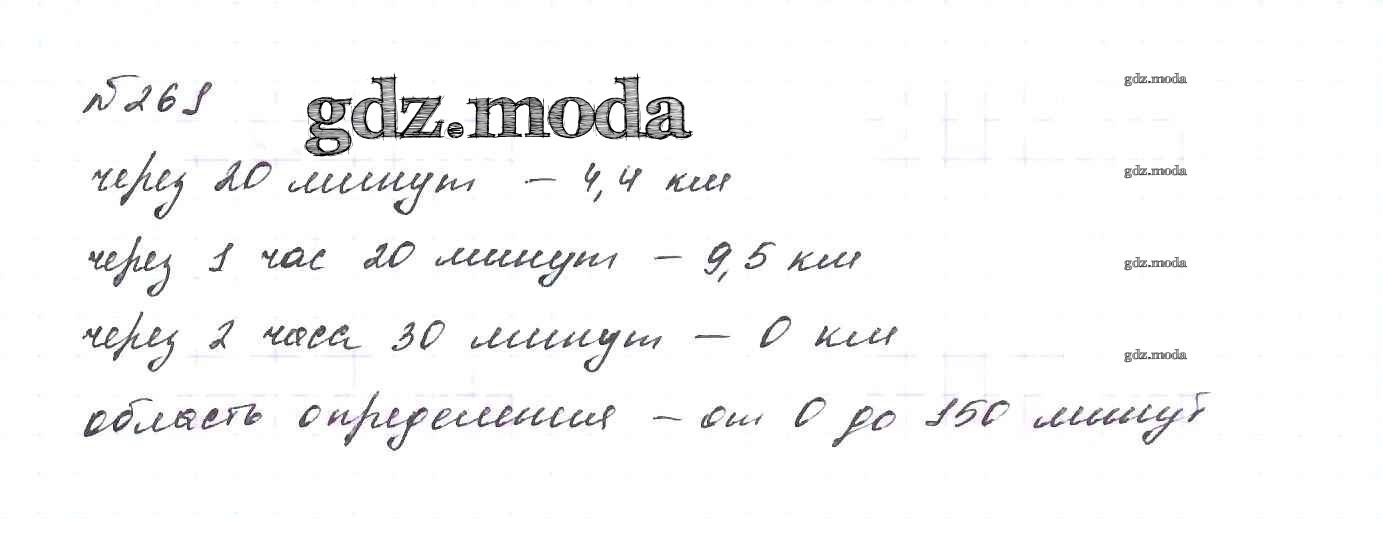 №261
gdz.moda
gdz.moda
через 20 минут - 4,4 км
gdz.moda
через 1 час 20 минут - 9,5 км
gdz.moda
через 2 часа 30 минут - 0 км
gdz.moda
область определения - от 0 до 150 минут